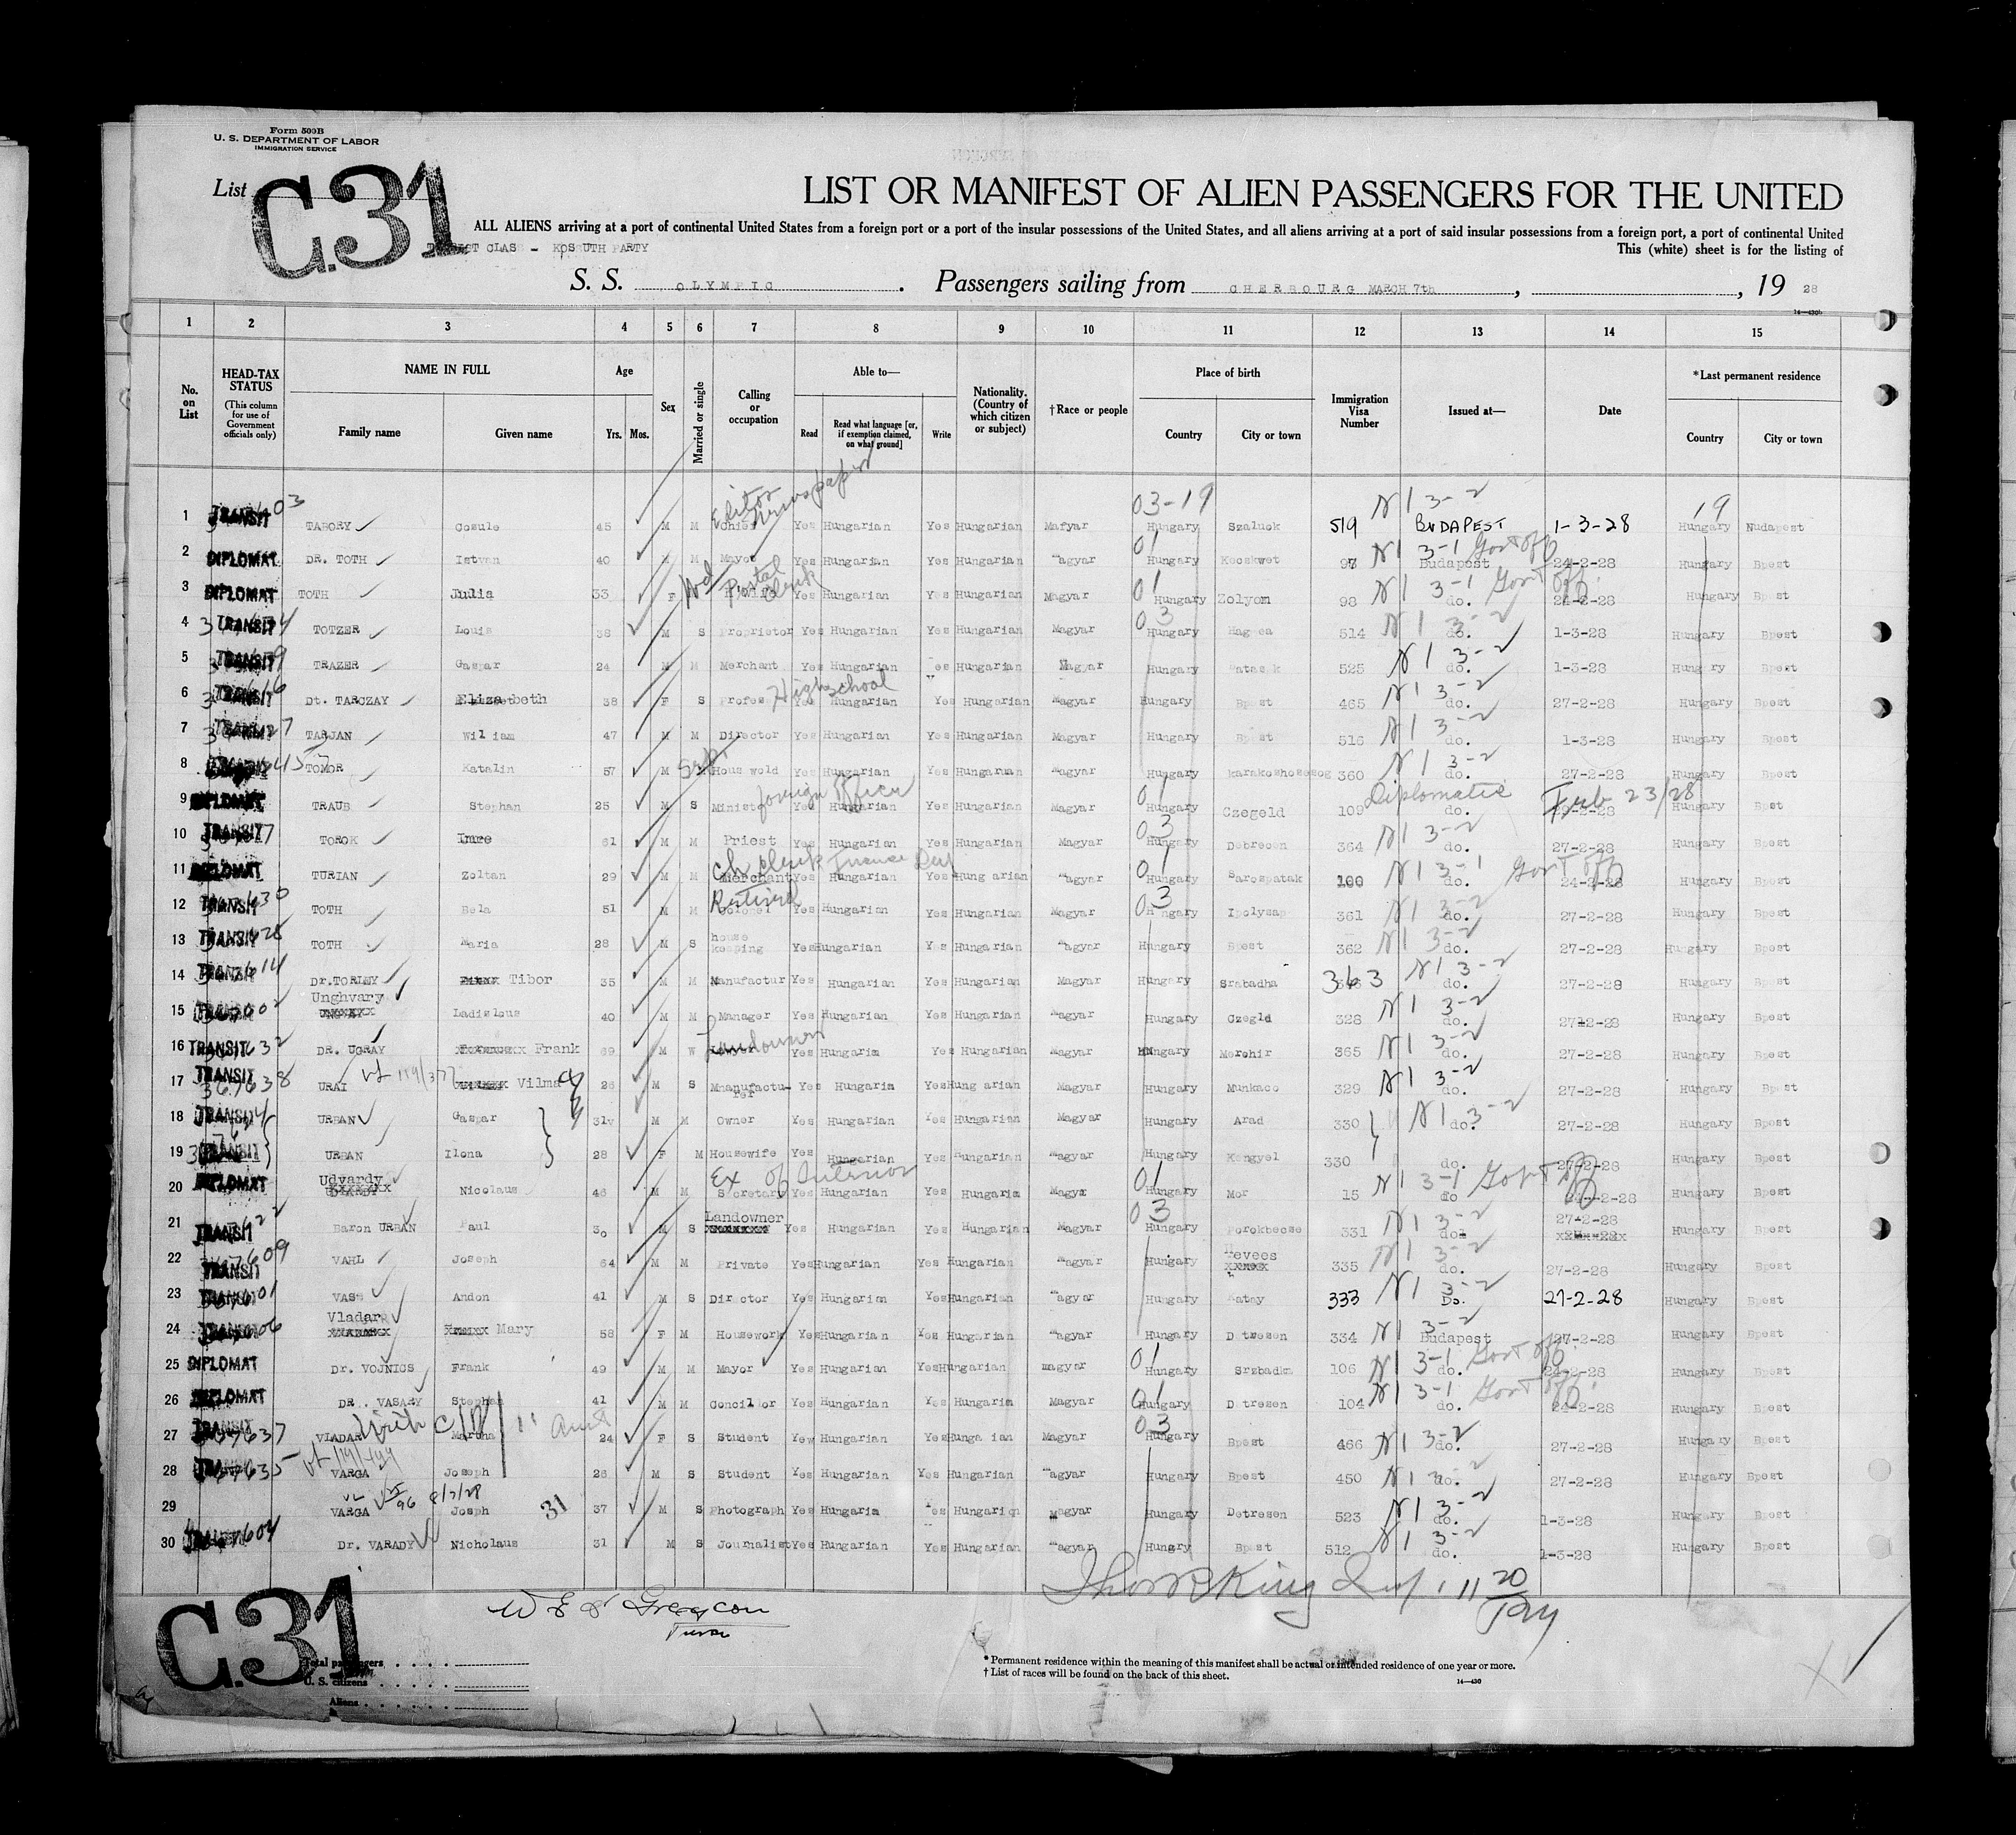 Form 500B
U. S. DEPARTMENT OF LABOR
IMMIGRATION SERVICE
List C.31
LIST OR MANIFEST OF ALIEN PASSENGERS FOR THE UNITED
ALL ALIENS arriving at a port of continental United States from a foreign port or a port of the insular possessions of the United States, and all aliens arriving at a port of said insular possessions from a foreign port, a port of continental United
CLASS - KOSSUTH PARTY
This (white) sheet is for the listing of
S. S. OLYMPIC. Passengers sailing from CHERBOURG MARCH 7th, , 19 28
14—430b
1 2 3 4 5 6 7 8 9 10 11 12 13 14 15
No. on List
HEAD-TAX STATUS (This column for use of Government officials only)
NAME IN FULL Family name Given name
Age Yrs. Mos.
Sex
Married or single
Calling or occupation
Able to— Read Read what language [or, if exemption claimed, on what ground] Write
Nationality. (Country of which citizen or subject)
†Race or people
Place of birth Country City or town
Immigration Visa Number
Issued at—
Date
*Last permanent residence Country City or town
1 TRANSIT TABORY Cosule 45 M M Editor Newspaper Yes Hungarian Yes Hungarian Mafyar 03-19 Hungary Szaluok 519 N1 3-2 BUDAPEST 1-3-28 19 Hungary Nudapest
2 DIPLOMAT DR. TOTH Istvan 40 M M Mayor Yes Hungarian Yes Hungarian Magyar 01 Hungary Kecskwet 97 N1 3-1 Govt off Budapest 24-2-28 Hungary Bpest
3 DIPLOMAT TOTH Julia 33 F Wd Postal Clerk Yes Hungarian Yes Hungarian Magyar 01 Hungary Zolyom 98 N1 3-1 Govt off. do. 24-2-28 Hungary Bpest
4 TRANSIT TOTZER Louis 38 M S Proprietor Yes Hungarian Yes Hungarian Magyar 03 Hungary 514 N1 3-2 do. 1-3-28 Hungary Bpest
5 TRANSIT TRAZER Gaspar 24 M M Merchant Yes Hungarian es Hungarian Magyar Hungary 525 N1 3-2 do. 1-3-28 Hungary Bpest
6 TRANSIT Dt. TARCZAY Elizabeth 38 F S Profes High school Yes Hungarian Yes Hungarian Magyar Hungary Bpest 465 N1 3-2 do. 27-2-28 Hungary Bpest
7 TRANSIT TARJAN Wiliam 47 M M Director Yes Hungarian Yes Hungarian Magyar Hungary Bpest 516 N1 3-2 do. 1-3-28 Hungary Bpest
8 TOMOR Katalin 57 M Houswold Yes Hungarian Yes Hungaruan Magyar Hungary 360 N1 3-2 do. 27-2-28 Hungary Bpest
9 DIPLOMAT TRAUB Stephan 25 M S Minist foreign Office Yes Hungarian Yes Hungarian Magyar 01 Hungary Czegeld 109 Diplomatic do. Feb 23/28 Hungary Bpest
10 TRANSIT TOROK Imre 61 M M Priest Yes Hungarian Yes Hungarian Magyar 03 Hungary Debrecen 364 N1 3-2 do. 27-2-28 Hungary Bpest
11 DIPLOMAT TURIAN Zoltan 29 M M Merchant Ch clerk Yes Hungarian Yes Hung arian Magyar 01 Hungary Sarospatak 100 N1 3-1 Govt off do. 24-2-28 Hungary Bpest
12 TRANSIT TOTH Bela 51 M M Retired Colonel Yes Hungarian Yes Hungarian Magyar 03 Hungary Ipolysag 361 N1 3-2 do. 27-2-28 Hungary Bpest
13 TRANSIT TOTH Maria 28 M S house keeping Yes Hungarian Yes Hungarian Magyar Hungary Bpest 362 N1 3-2 do. 27-2-28 Hungary Bpest
14 TRANSIT Dr.TORLEY Tibor 35 M M Manufactur Yes Hungarian Yes Hungarian Magyar Hungary Szabadha 363 N1 3-2 do. 27-2-28 Hungary Bpest
15 TRANSIT Unghvary Ladislous 40 M M Manager Yes Hungarian Yes Hungarian Magyar Hungary Czegld 328 N1 3-2 do. 27-2-28 Hungary Bpest
16 TRANSIT DR. UGRAY Frank 69 M W Landowner Yes Hungaria Yes Hungarian Magyar Hungary Merchir 365 N1 3-2 do. 27-2-28 Hungary Bpest
17 TRANSIT 367638 URAI Vilma 26 M S Mmanufactu-rer Yes Hungaria Yes Hung arian Magyar Hungary Munkaco 329 N1 3-2 do. 27-2-28 Hungary Bpest
18 TRANSIT URBAN Gaspar 31 M M Owner Yes Hungarian Yes Hungarian Magyar Hungary Arad 330 N1 3-2 do. 27-2-28 Hungary Bpest
19 TRANSIT URBAN Ilona 28 F M Housewife Yes Hungarian Yes Hungarian Magyar Hungary Kengyel 330 do. 27-2-28 Hungary Bpest
20 DIPLOMAT Udvardy Nicolaus 46 M M Ex Secretary of Interior Yes Hungarian Yes Hungaria Magya 01 Hungary Mor 15 N1 3-1 Govt off do 24-2-28 Hungary Bpest
21 TRANSIT Baron URBAN Paul 30 M S Landowner Yes Hungarian Yes Hungarian Magyar 03 Hungary Porokbecse 331 N1 3-2 do. 27-2-28 Hungary Bpest
22 TRANSIT VAHL Joseph 64 M M Private Yes Hungarian Yes Hungarian Magyar Hungary Hevees 335 N1 3-2 do. 27-2-28 Hungary Bpest
23 TRANSIT VASS Andon 41 M S Director Yes Hungarian Yes Hungarian Magyar Hungary 333 N1 3-2 Do. 27-2-28 Hungary Bpest
24 TRANSIT Vladar Mary 58 F M Housework Yes Hungarian Yes Hungarian Magyar Hungary D tresen 334 N1 3-2 Budapest 27-2-28 Hungary Bpest
25 DIPLOMAT Dr. VOJNICS Frank 49 M M Mayor Yes Hungarian Yes Hungarian magyar 01 Hungary Srzbadka 106 N1 3-1 Govt off. do. 24-2-28 Hungary Bpest
26 DIPLOMAT DR. VASARY Stephan 41 M M Concillor Yes Hungarian Yes Hungaria Magyar 01 Hungary D tresen 104 N1 3-1 Govt off. do. 24-2-28 Hungary Bpest
27 TRANSIT VLADAR Martha 24 F S Student Yew Hungarian Yes Hunga ian Magyar 03 Hungary Bpest 466 N1 3-2 do. 27-2-28 Hungary Bpest
28 TRANSIT VARGA Joseph 26 M S Student Yes Hungarian Yes Hungarian Magyar Hungary Bpest 450 N1 do. 27-2-28 Hungary Bpest
29 VARGA Joseph 31 37 M S Photograph Yes Hungaria Yes Hungarian Magyar Hungary Detresen 523 N1 3-2 do. 1-3-28 Hungary Bpest
30 Dr. VARADY Nicholaus 31 M S Journalist Yes Hungarian Yes Hungarian Magyar Hungary Bpest 512 N1 3-2 do. 1-3-28 Hungary Bpest
C.31
Total passengers
U. S. citizens
Aliens
* Permanent residence within the meaning of this manifest shall be actual or intended residence of one year or more.
† List of races will be found on the back of this sheet.
14—430